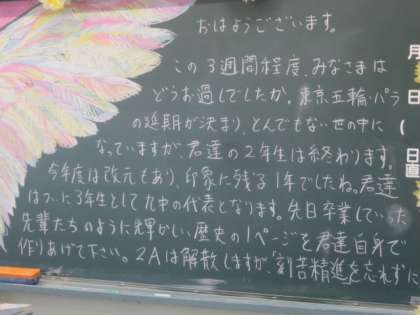 おはようございます。
この3週間程度、みなさまは
どうお過しでしたか。東京五輪・パラ
の延期が決まり、とんでもない世の中に
なっていますが、君達の2年生は終わります。
今年度は改元もあり、印象に残る1年でしたね。君達
はついに3年生として九中の代表となります。先日卒業していった
先輩たちのように輝かしい歴史の1ページを君達自身で
作りあげて下さい。2Aは解散しますが、刻苦精進を忘れずに
月
日
(
日直